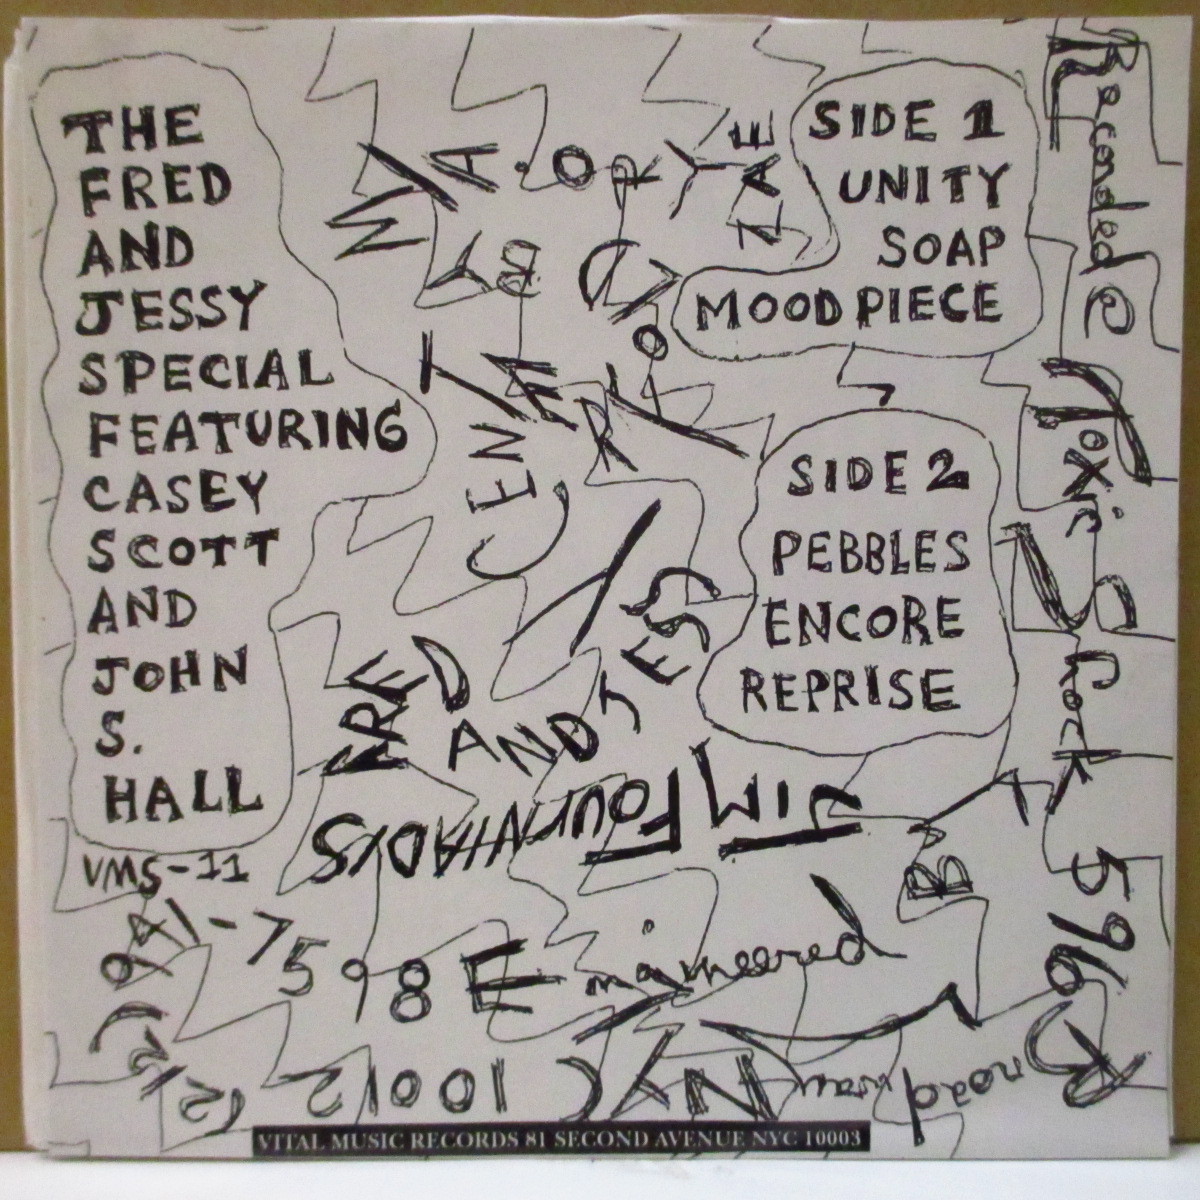 THE
FRED
AND
JESSY
SPECIAL
FEATURING
CASEY
SCOTT
AND
JOHN
S.
HALL
VMS-11
SIDE 1
UNITY
SOAP
MOOD PIECE
SIDE 2
PEBBLES
ENCORE
REPRISE
Recorded @ Toxic Shock 596 Broadway NYC 10012 (212) 941-7598
Engineered By
JIM FOURNIADIS
FRED AND JESSY
VITAL MUSIC RECORDS 81 SECOND AVENUE NYC 10003